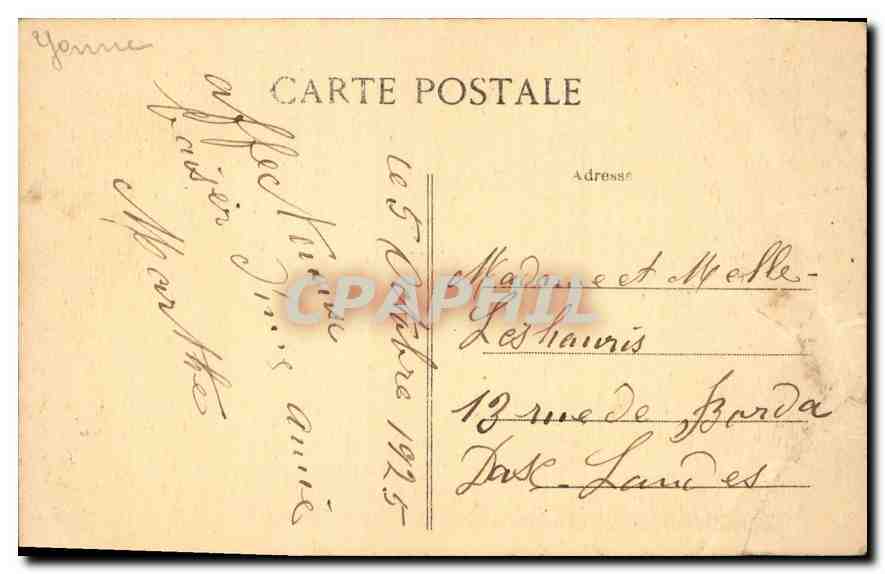 Yonne
CARTE POSTALE
Adresse
le 5 Octobre 1925
Affectueuse
baiser d'une amie
Marthe
Madame et Melle
Leshauris
13 rue de Borda
Dax Landes
CPAPHIL